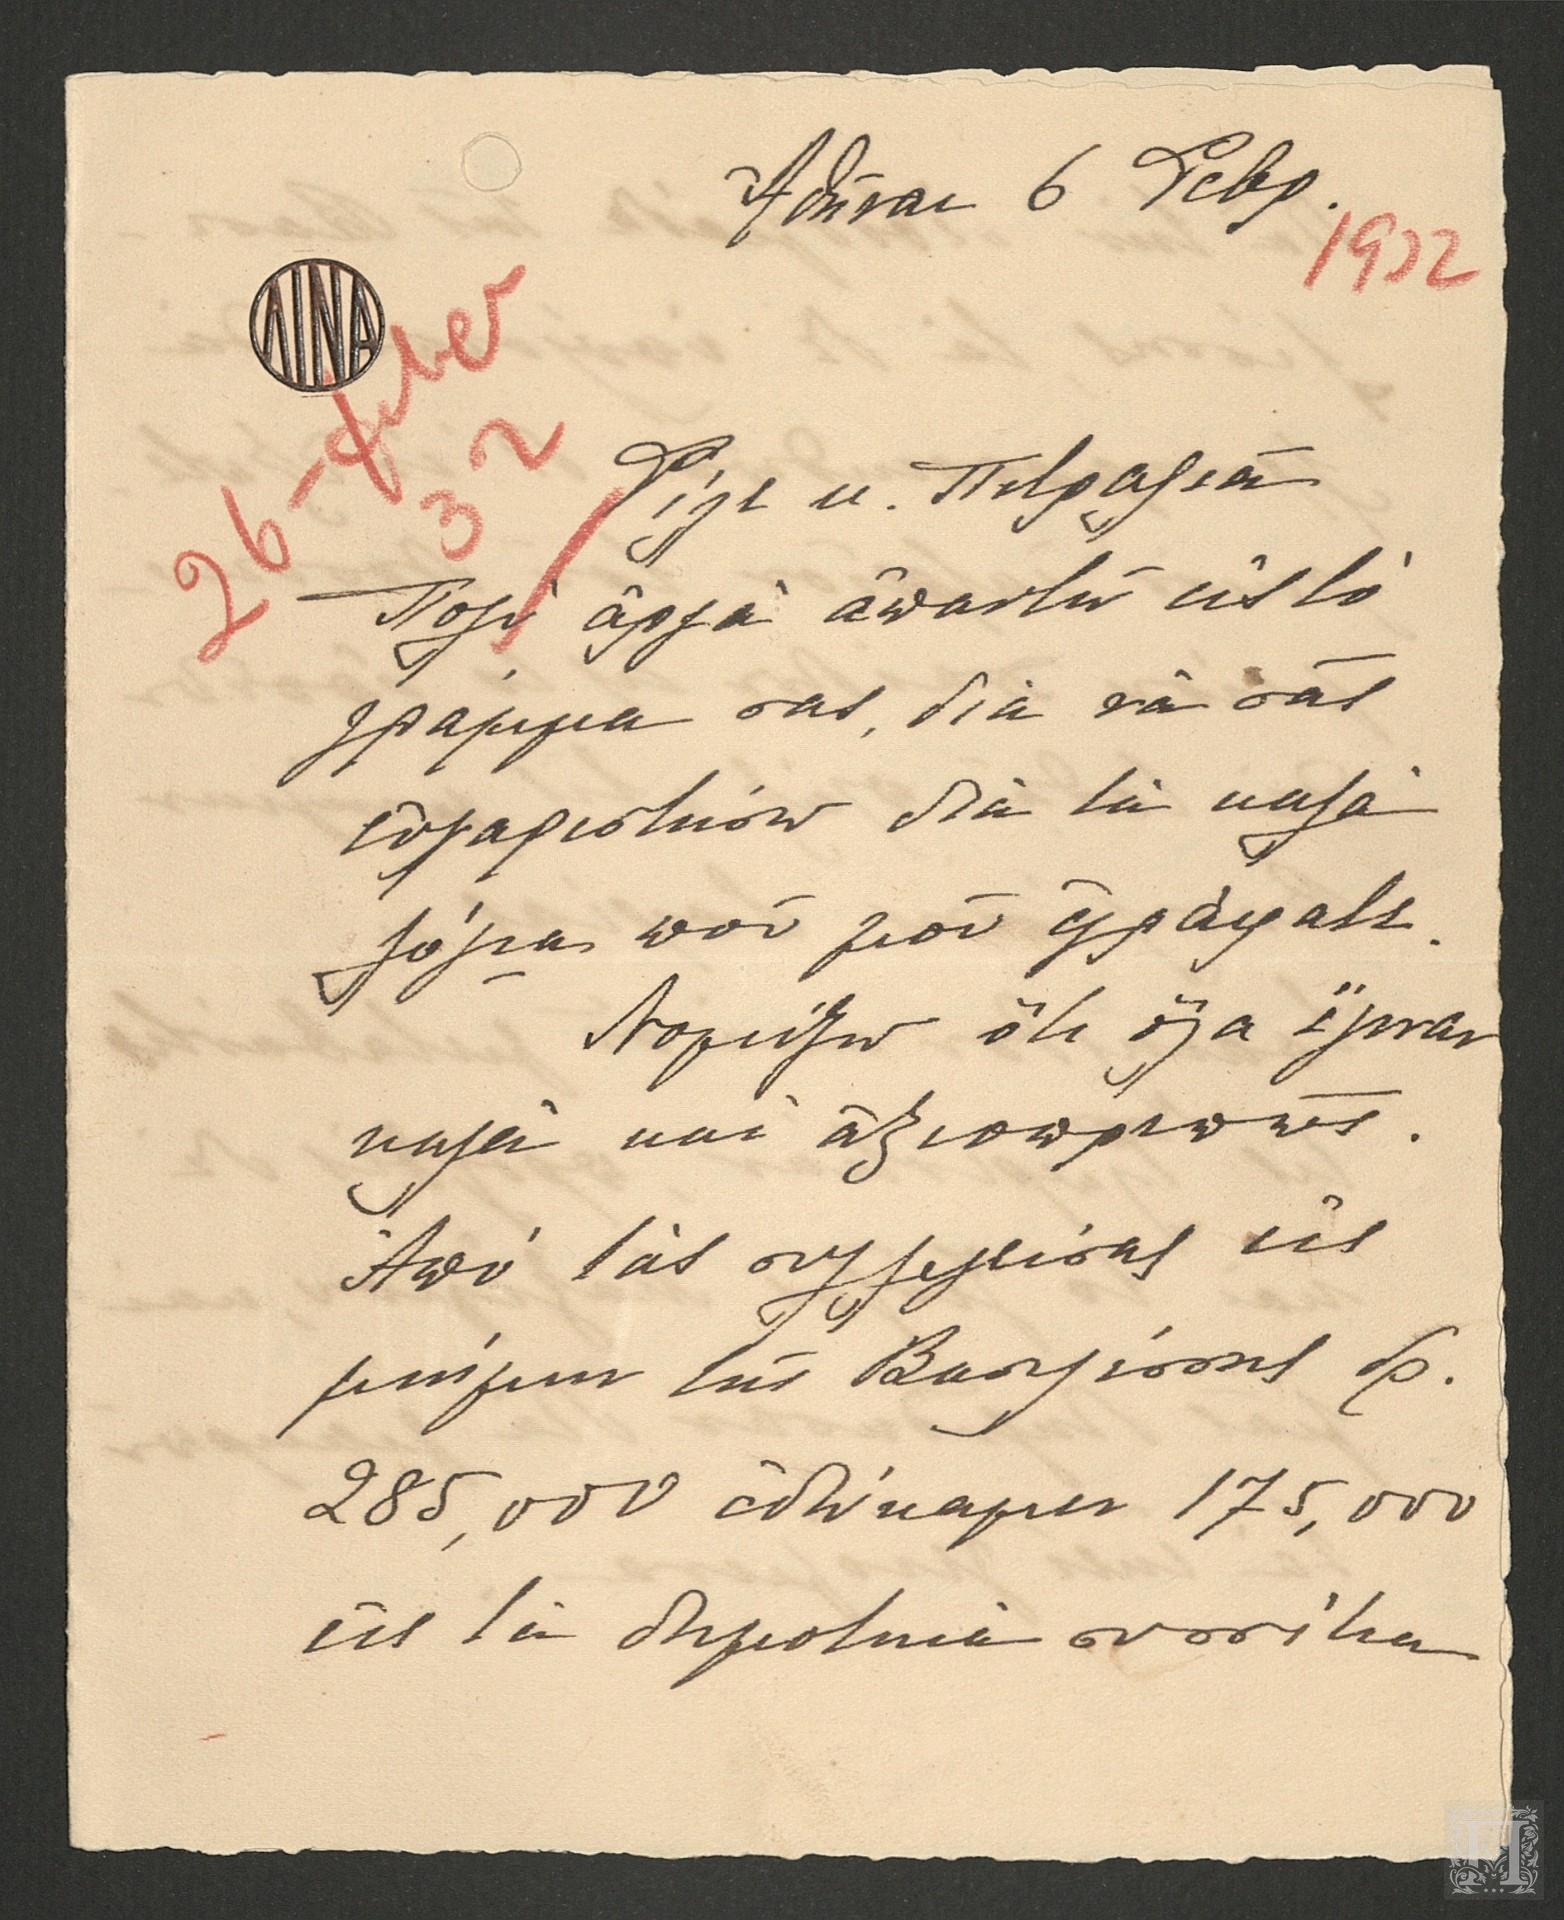 Ἀθῆναι 6 Φεβρ.
1932
ΛΙΝΑ
26-φεβ
32
Φίλε κ. Πετραλιᾶ
Πολὺ ἀργὰ ἀπαντῶ εἰς τὸ
γράμμα σας, διὰ νὰ σᾶς
εὐχαριστήσω διὰ τὰ καλὰ
λόγια ποῦ μοῦ ἐγράψατε.
Νομίζω ὅτι ὅλα ἔγιναν
καλὰ καὶ ἀξιοπρεπῶς.
Ἀπὸ τὰς συλλυπήσεις εἰς
μνήμην τῆς Βασιλίσσης δρ.
285,000 ἐδώκαμεν 175,000
εἰς τὰ δημοτικὰ συσσίτια